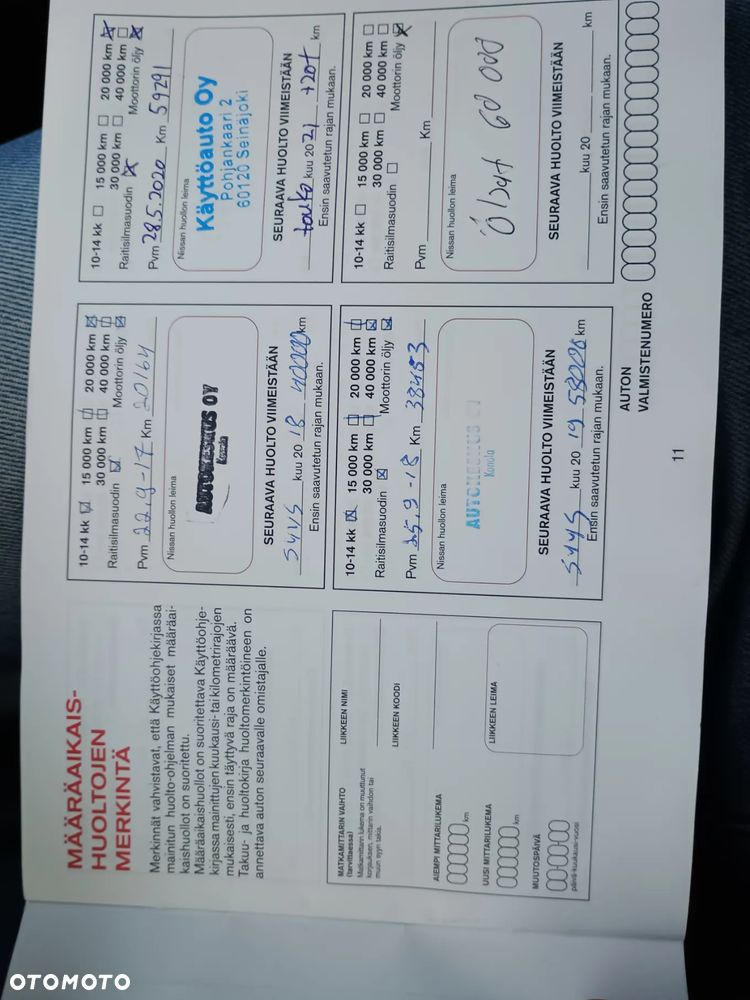 MÄÄRÄAIKAIS-
HUOLTOJEN
MERKINTÄ
Merkinnät vahvistavat, että Käyttöohjekirjassa
mainitun huolto-ohjelman mukaiset määräai-
kaishuollot on suoritettu.
Määräaikaishuollot on suoritettava Käyttöohje-
kirjassa mainittujen kuukausi- tai kilometrirajojen
mukaisesti, ensin täyttyvä raja on määräävä.
Takuu- ja huoltokirja huoltomerkintöineen on
annettava auton seuraavalle omistajalle.
MATKAMITTARIN VAIHTO
(tarvittaessa)
Matkamittarin lukema on muuttunut
korjauksen, mittarin vaihdon tai
muun syyn takia.
AIEMPI MITTARILUKEMA
km
UUSI MITTARILUKEMA
km
MUUTOSPÄIVÄ
päivä-kuukausi-vuosi
LIIKKEEN NIMI
LIIKKEEN KOODI
LIIKKEEN LEIMA
10-14 kk 15 000 km 20 000 km
30 000 km 40 000 km
Raitisilmasuodin Moottorin öljy
Pvm 22.9-17 Km 20164
Nissan huollon leima
AUTOKESKUS OY
Konala
SEURAAVA HUOLTO VIIMEISTÄÄN
SYYS kuu 20 18 40000 km
Ensin saavutetun rajan mukaan.
10-14 kk 15 000 km 20 000 km
30 000 km 40 000 km
Raitisilmasuodin Moottorin öljy
Pvm 28.5.2020 Km 59291
Nissan huollon leima
Käyttöauto Oy
Pohjankaari 2
60120 Seinäjoki
SEURAAVA HUOLTO VIIMEISTÄÄN
touko kuu 20 21 +20t km
Ensin saavutetun rajan mukaan.
10-14 kk 15 000 km 20 000 km
30 000 km 40 000 km
Raitisilmasuodin Moottorin öljy
Pvm 25.9-18 Km 38483
Nissan huollon leima
AUTOKESKUS OY
Konala
SEURAAVA HUOLTO VIIMEISTÄÄN
SYYS kuu 20 19 58000 km
Ensin saavutetun rajan mukaan.
10-14 kk 15 000 km 20 000 km
30 000 km 40 000 km
Raitisilmasuodin Moottorin öljy
Pvm Km
Nissan huollon leima
60 000
SEURAAVA HUOLTO VIIMEISTÄÄN
kuu 20 km
Ensin saavutetun rajan mukaan.
AUTON
VALMISTENUMERO
11
OTOMOTO